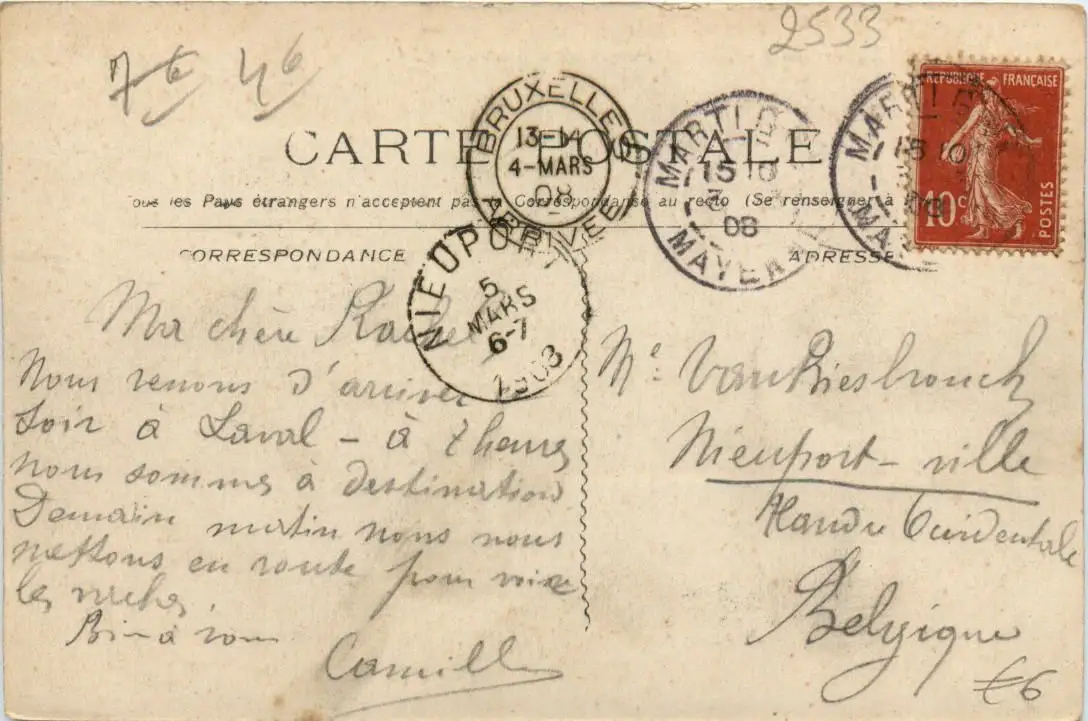 2533
7€ 4€
RÉPUBLIQUE FRANÇAISE
10c
POSTES
CARTE POSTALE
BRUXELLES
13-14
4-MARS
08
ARRIVÉE
MARTI
15 10
3
08
MAYEN
MARTI
15 10
08
MA
ous les Pays étrangers n'acceptent pas Correspondance au recto (Se renseigner à
CORRESPONDANCE
ADRESSE
NIEUPORT
5
MARS
6-7
1908
Ma chère Rachel
Nous venons d'arriver
soir à Laval - à 7 heures
nous sommes à destination
Demain matin nous nous
mettons en route pour voir
les
Bien à vous
Camille
Mr VanBiesbrouck
Nieuport-ville
Flandre Occidentale
Belgique
€6